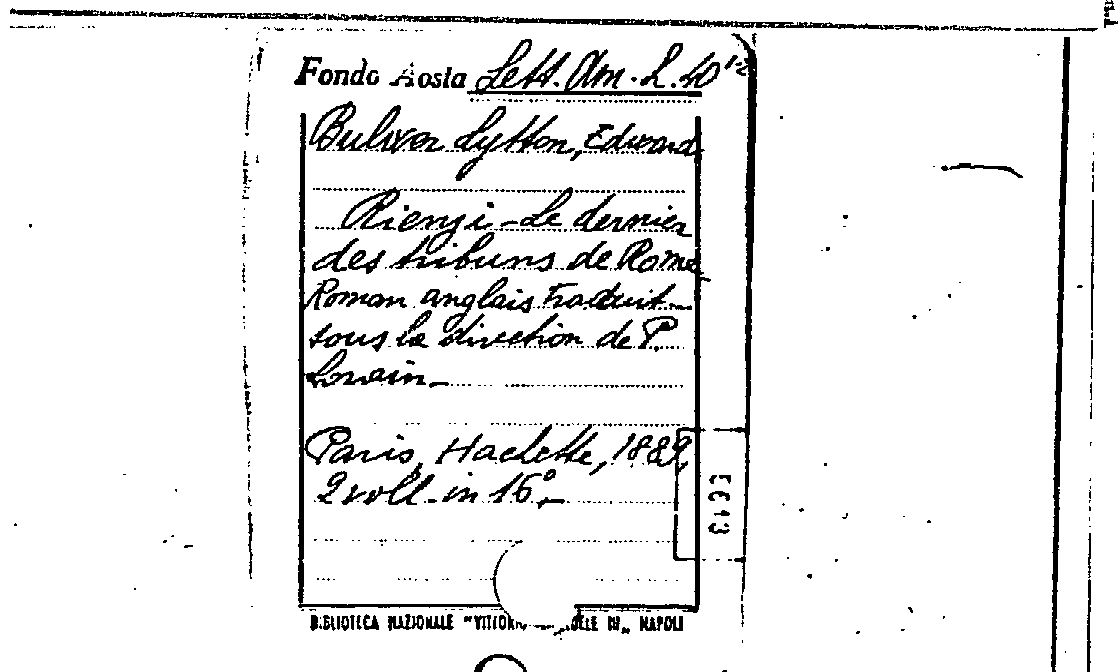 Fondo Aosta Lett. Am. L. 40 1-2
Bulwer Lytton, Edward
Rienzi - Le dernier
des tribuns de Rome
Roman anglais traduit
sous la direction de P.
Lorain -
Paris, Hachette, 1882,
2 voll. in 16° -
5613
BIBLIOTECA NAZIONALE "VITTORIO ELE III„ NAPOLI